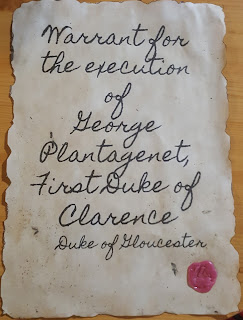 Warrant for
the execution
of
George
Plantagenet,
First Duke of
Clarence
Duke of Gloucester